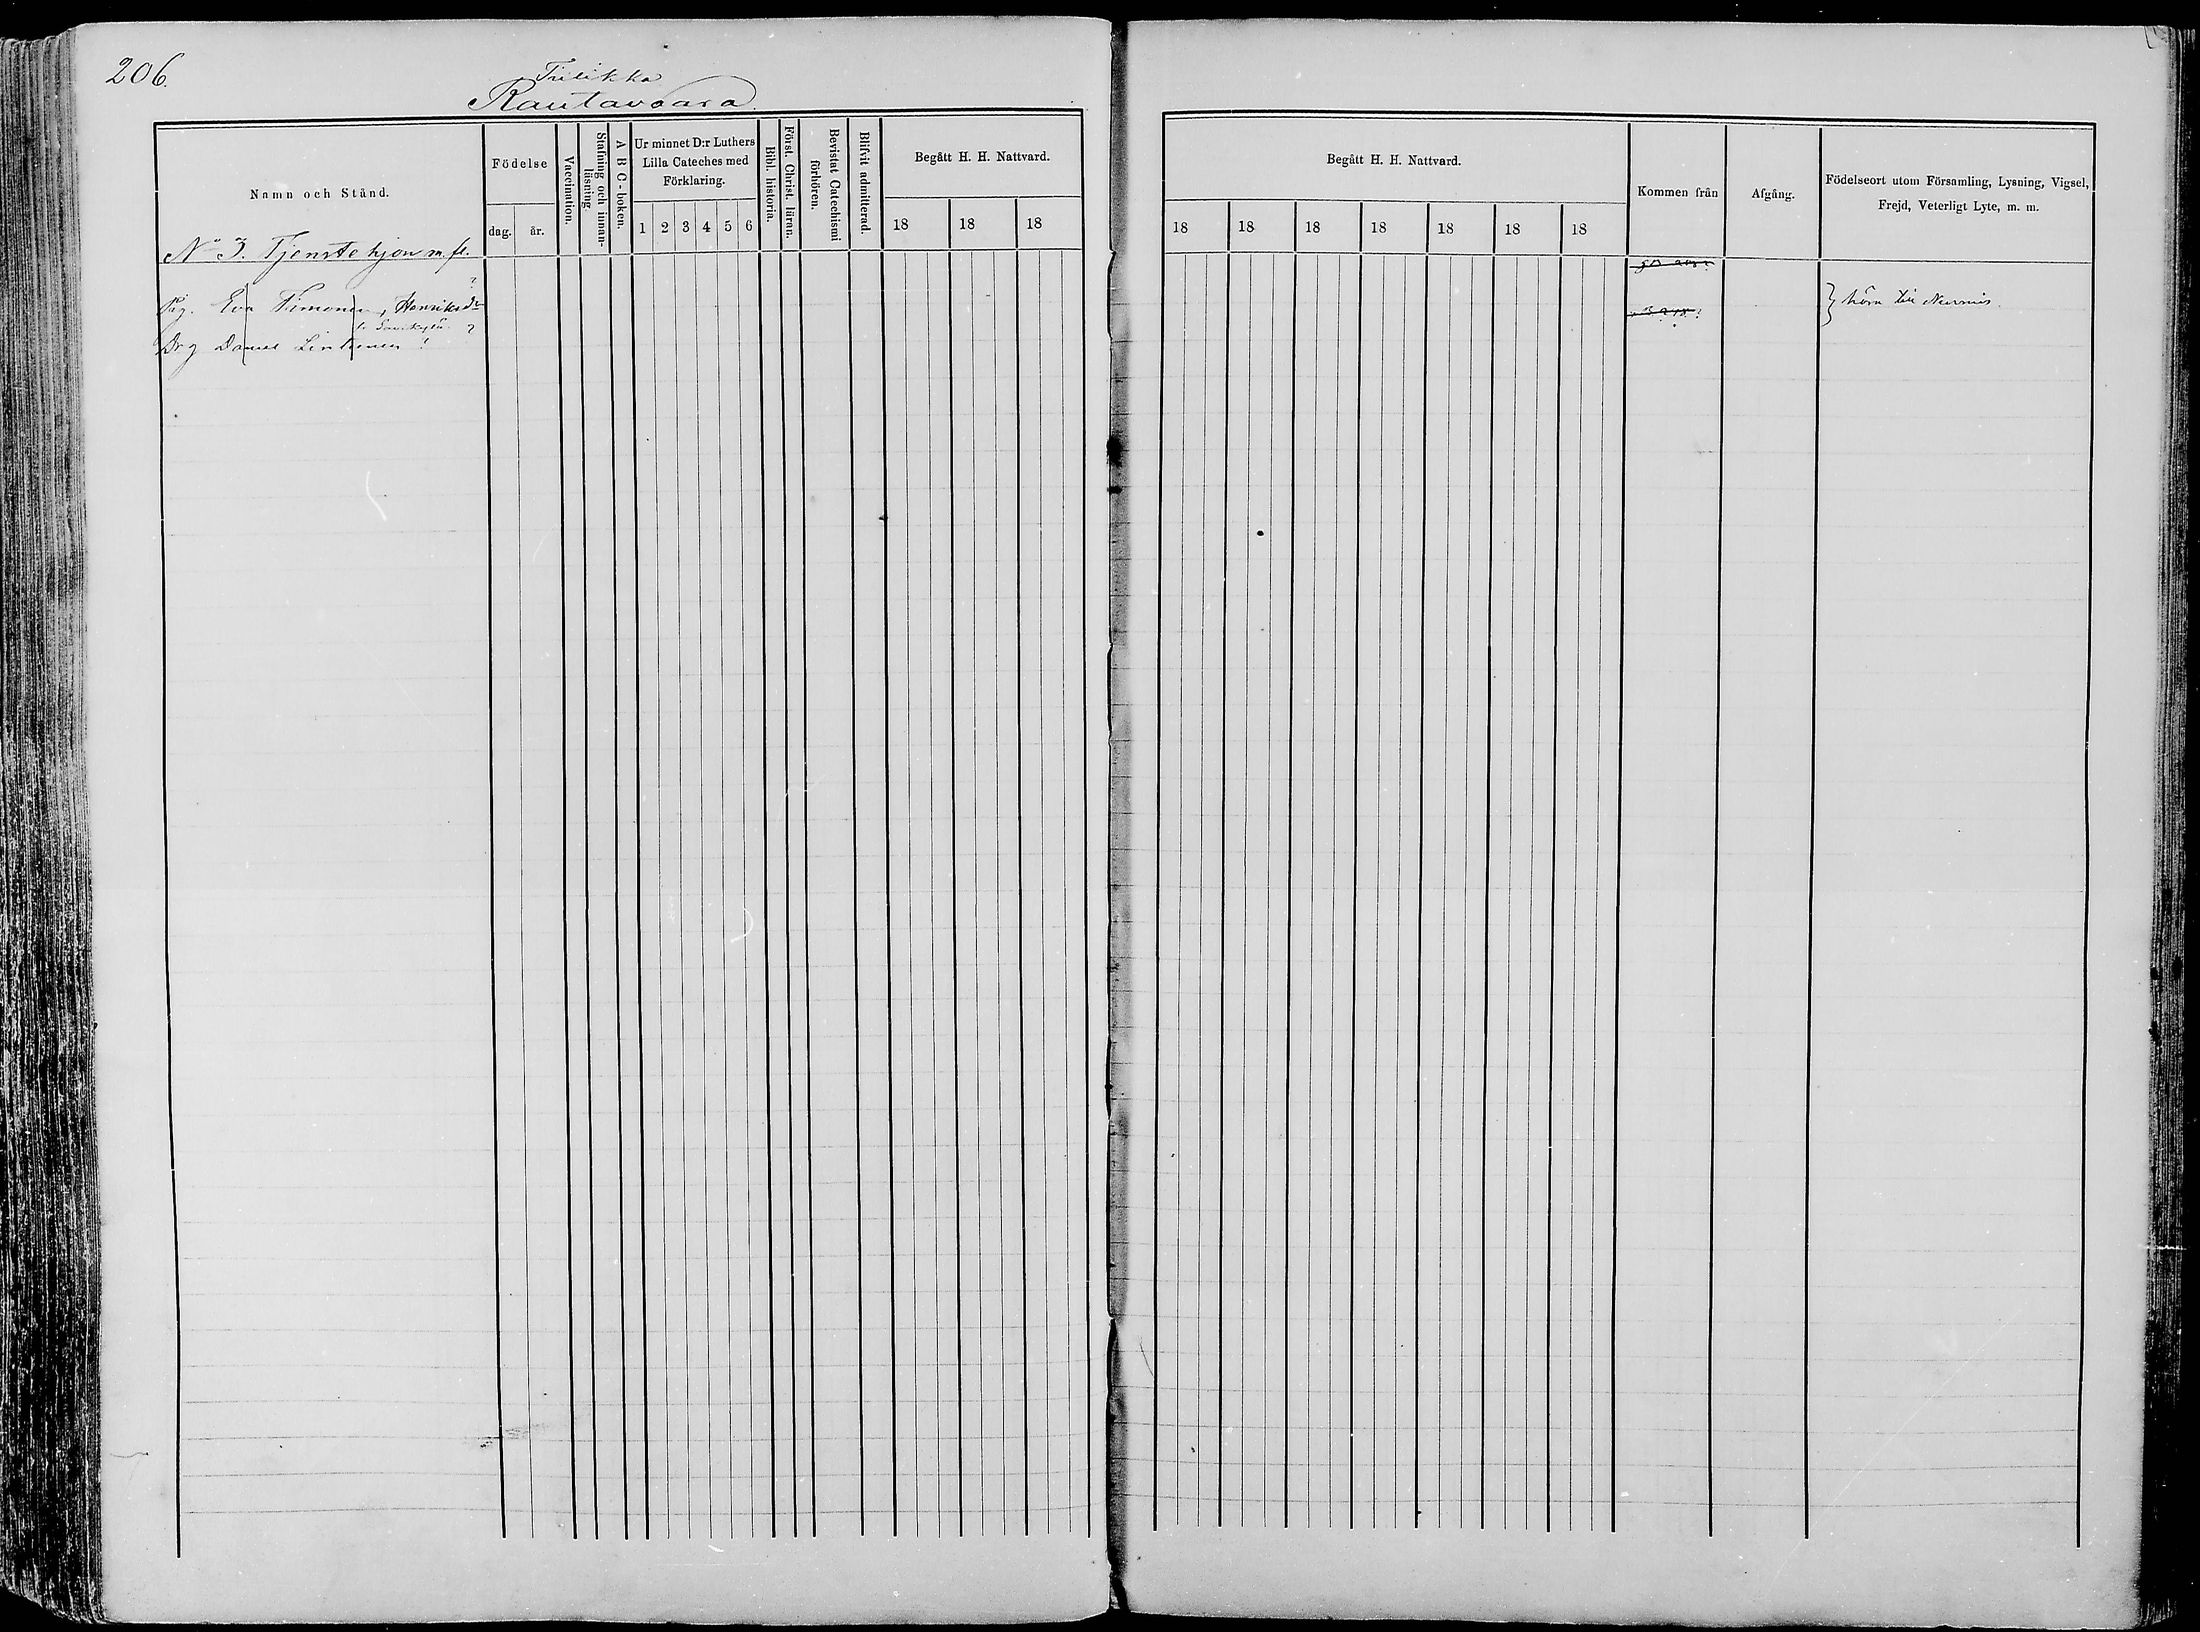 206.
Tiilikka
Rautavaara.
Namn och Stånd.
Födelse
dag. år.
Vaccination.
Stafning och innanläsning.
A B C-boken.
Ur minnet D:r Luthers
Lilla Cateches med
Förklaring.
1 2 3 4 5 6
Bibl. historia.
Först. Christ. läran.
Bevistat Catechismi
förhören.
Blifvit admitterad.
Begått H. H. Nattvard.
18 18 18
Begått H. H. Nattvard.
18 18 18 18 18 18 18
Kommen från
Afgång.
Födelseort utom Församling, Lysning, Vigsel,
Frejd, Veterligt Lyte, m. m.
No 3. Tjenstehjon m. fl.
?
Pig. Eva Timonen, Henriksdr
?
Drg Daniel Lintunen !
höra till Nurmis.